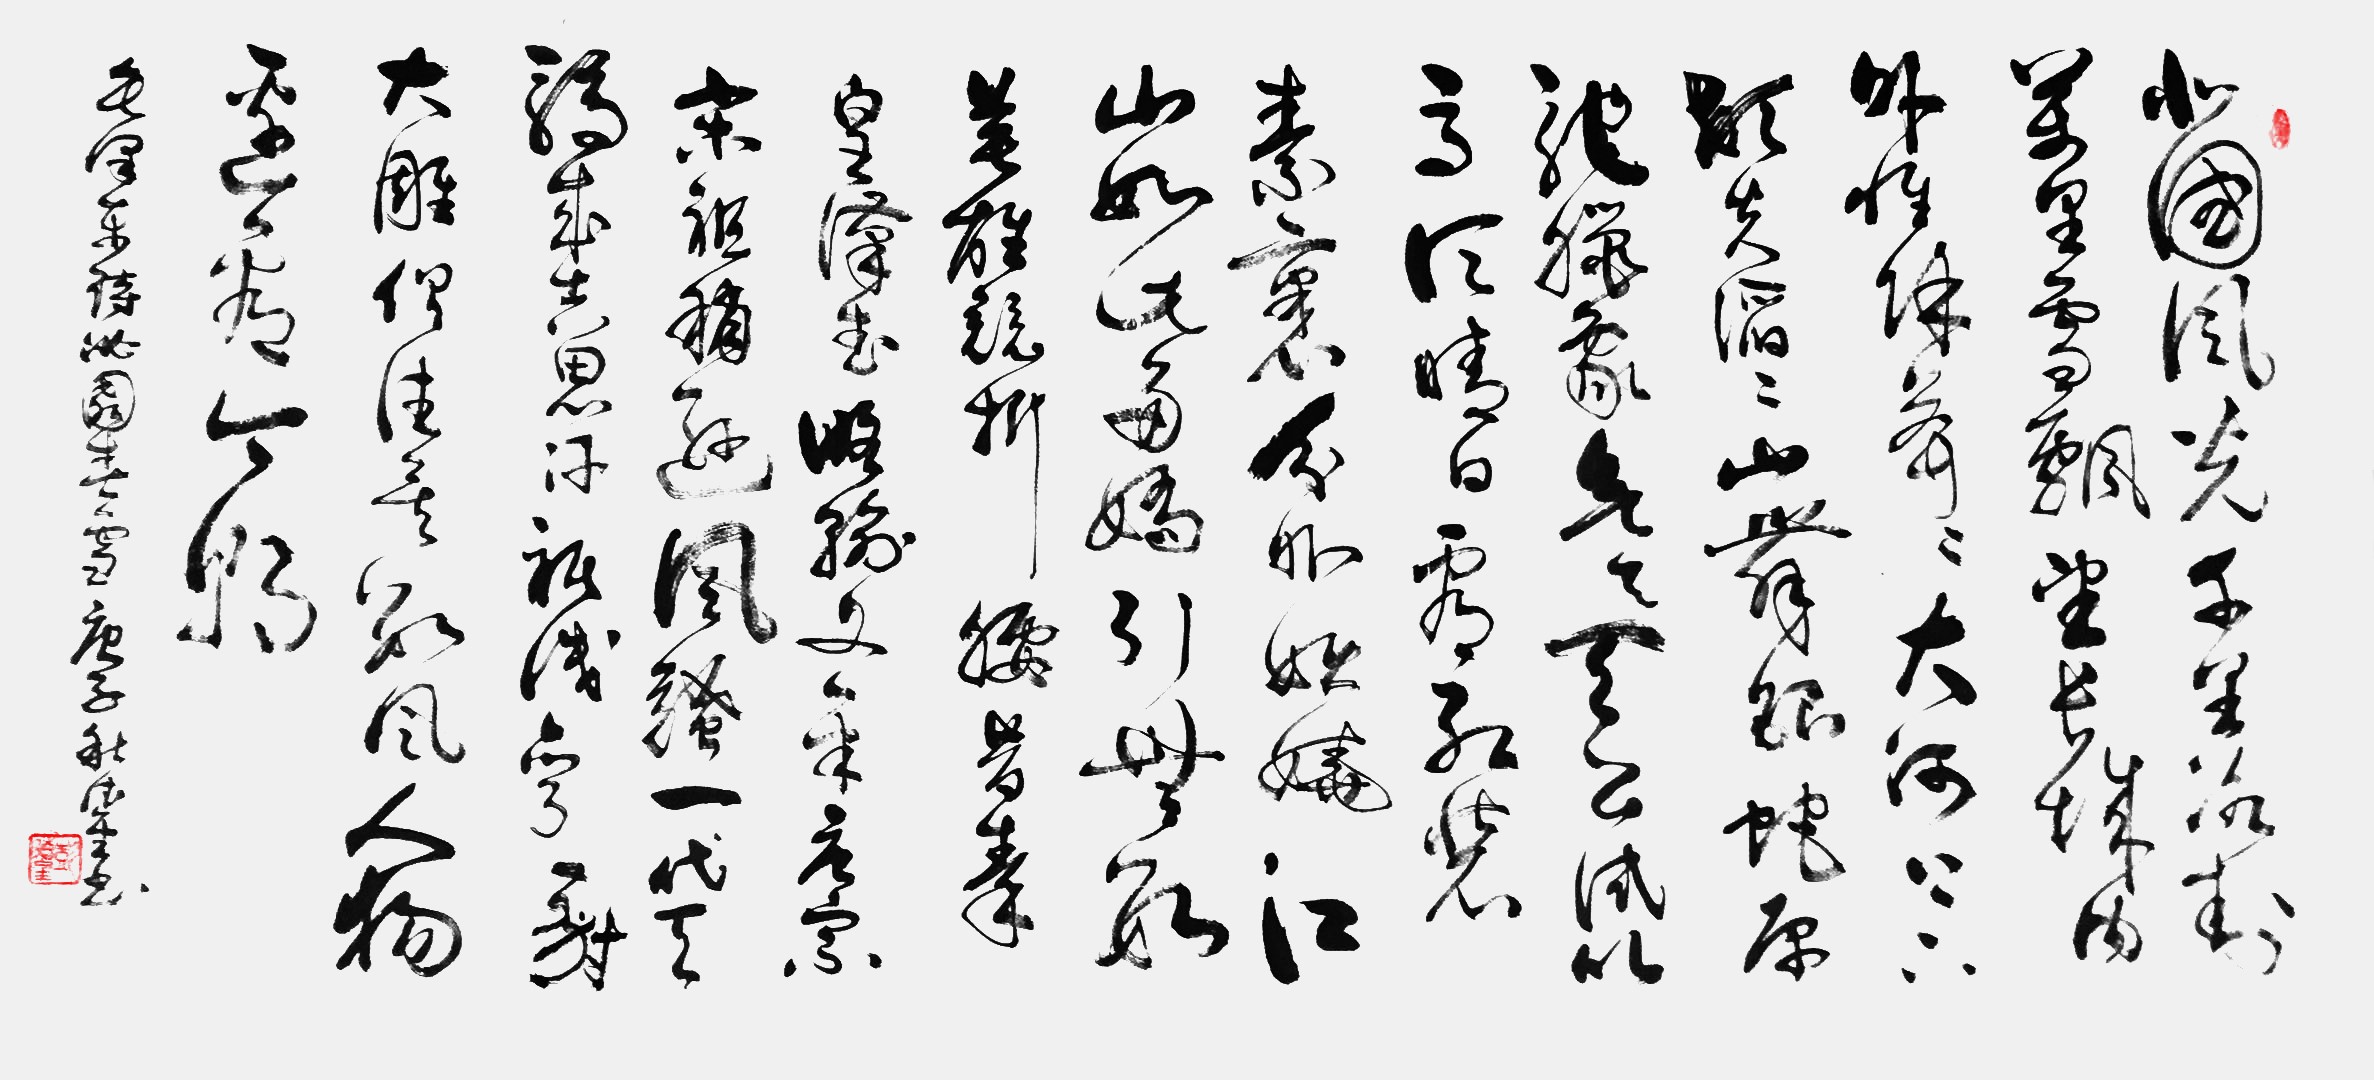 北國風光千里冰封
萬里雪飄望長城内
外惟餘莽〻大河上下
頓失滔〻山舞銀蛇原
馳臘象欲與天公試比
高須晴日看紅裝
素裹分外妖嬈江
山如此多嬌引無數
英雄競折腰昔秦
皇漢武略輸文采唐宗
宋祖稍遜風騷一代天
驕成吉思汗祇識彎射
大雕俱往矣數風人物
還看今朝
毛澤東詩沁園春雪庚子秋書